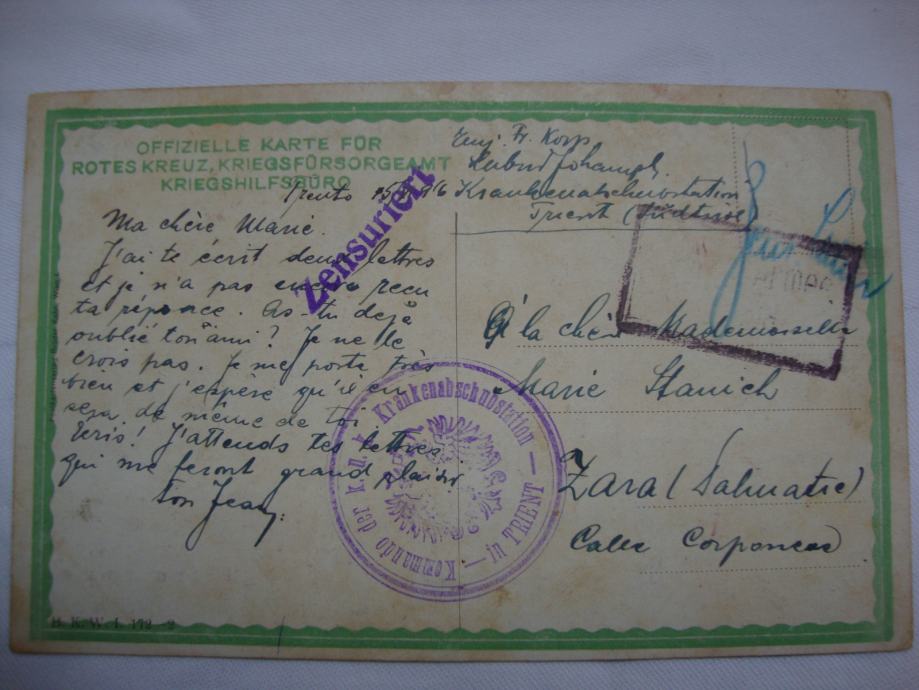 OFFIZIELLE KARTE FÜR
ROTES KREUZ, KRIEGSFÜRSORGEAMT
KRIEGSHILFSBÜRO
Zensuriert
Trento
Ma chère Marie.
J'ai te écrit deux lettres
et je n'a pas encore reçu
ta réponce. As-tu dejà
oublié ton ami? Je ne le
crois pas. Je me porte très
bien et j'espère qu'il en
sera de même de toi.
Ecris! J'attends tes lettres
qui me feront grand plaisir
Ton Jean.
Fr. Korp
Krankenabschubstation
Trient (Südtirol)
Armee
A la chère Mademoiselle
Marie Stanich
Zara (Dalmatie)
Calle
Kommando der k. u. k. Krankenabschubstation
in TRIENT
B. K. W. I. 172-2